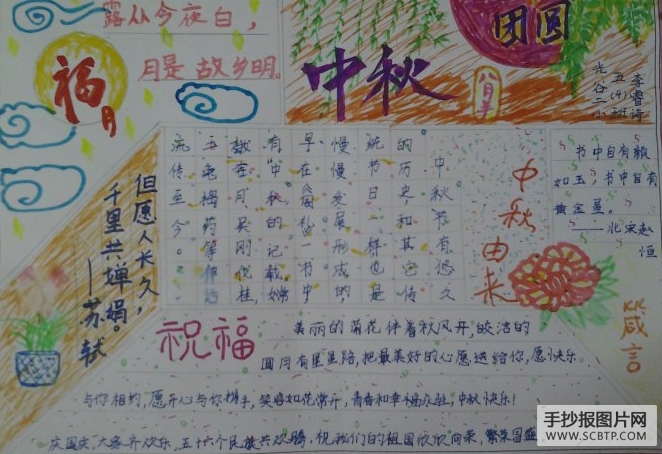 露从今夜白，
月是故乡明。
福
月
中秋
团圆
八月半
李睿诗
五(4)班
光谷二小
但愿人长久，
千里共婵娟。
——苏轼
中秋由来
中秋节有悠久
的历史和其它传
统节日一样也是
慢慢发展形成的
早在《周礼》一书中
有“中秋”的记载。嫦
娥奔月吴刚伐桂，
流传至今。
书中自有颜
如玉，书中自有
黄金屋。
——北宋赵
恒
箴言
祝福
美丽的菊花伴着秋风开，皎洁的
圆月有星星陪，把最美好的心愿送给你，愿快乐
与你相约，愿开心与你携手，笑容如花常开，青春和幸福永驻，中秋快乐！
庆国庆，大家齐欢乐，五十六个民族共欢腾，祝我们的祖国欣欣向荣，繁荣昌盛
手抄报图片网
WWW.SCBTP.COM